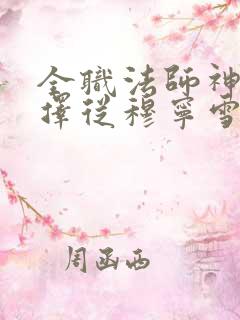 全職法師神
擇從穆寧雪
周函西